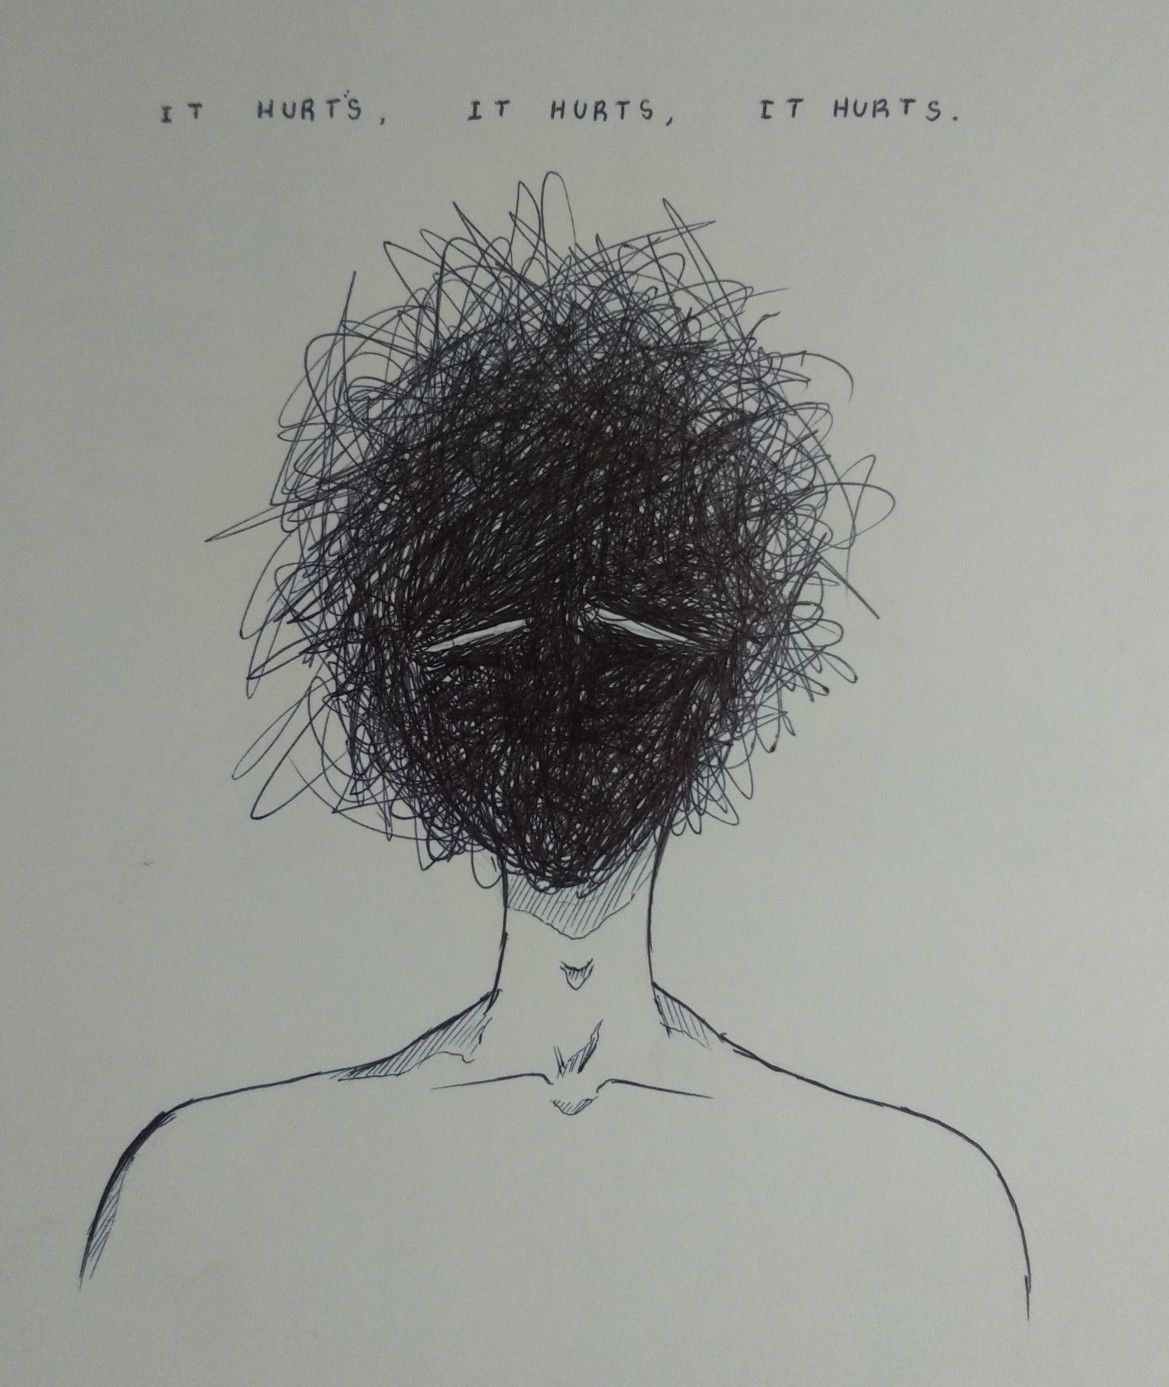 IT HURTS, IT HURTS, IT HURTS.